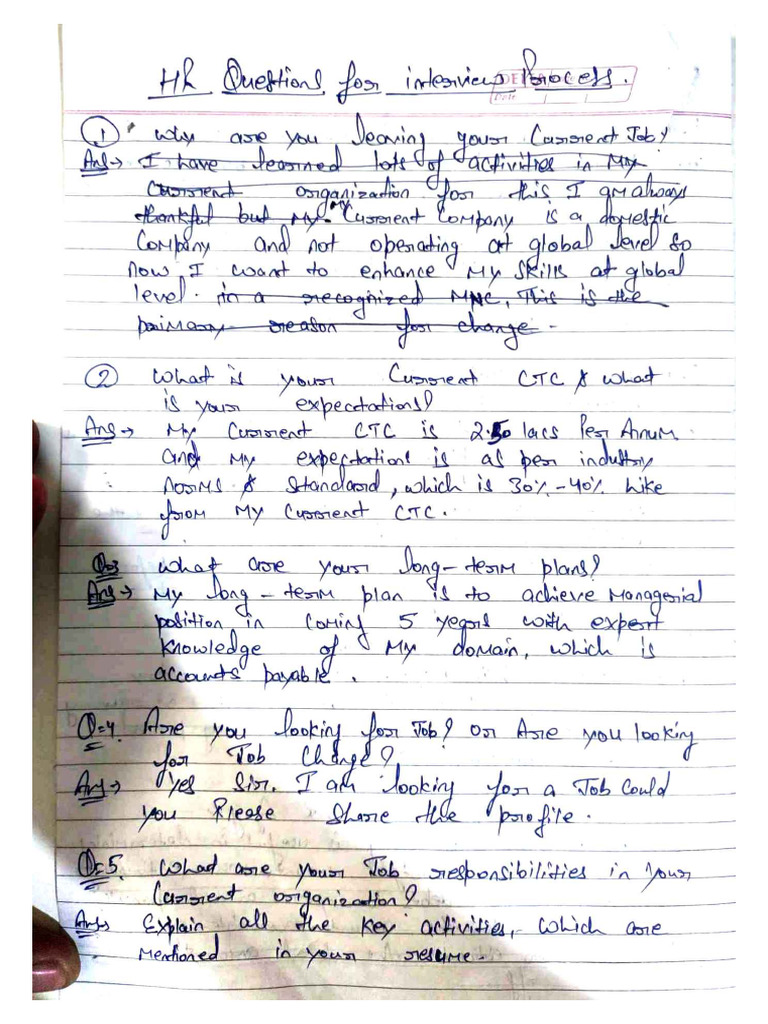 HR Questions for interview Process.
① Why are you leaving your Current Job?
Ans→ I have learned lots of activities in My
Current organization for this I am always
thankful but My My Current Company is a domestic
Company and not operating at global level so
now I want to enhance My skills at global
level. in a recognized MNC, This is the
primary reason for change.
② What is your Current CTC & what
is your expectations?
Ans→ My Current CTC is 2.50 lacs Per Anum
and My expectations is as per industry
norms & Standard, which is 30%-40% hike
from My Current CTC.
Q=3 What are your long-term plans?
Ans→ My long-term plan is to achieve Managerial
position in Coming 5 years with expert
knowledge of My domain, which is
accounts payable.
Q=4. Are you looking for Job? or Are you looking
for Job Change?
Ans→ Yes Sir. I am looking for a Job Could
you Please Share the profile.
Q=5. What are your Job responsibilities in your
Current organization?
Ans→ Explain all the key activities, which are
Mentioned in your resume.